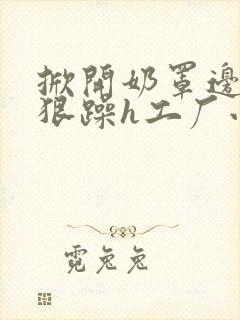 掀開奶罩邊
狠躁h工厂
霓兔兔